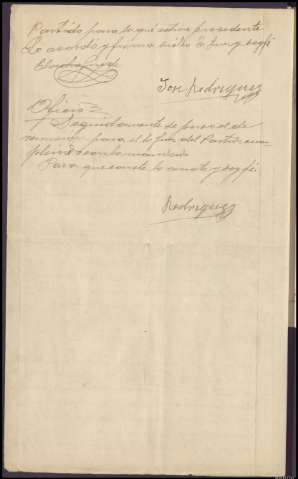 Partido para lo que estime procedente
Lo acordó y firma dicho Sr Juez doy fé
José Rodriguez
Oficio =
Seguidamente se pone el de
remision para el Sr Juez del Partido, cum
pliendo con lo mandado
Para que conste lo anoto y doy fé.
Rodriguez